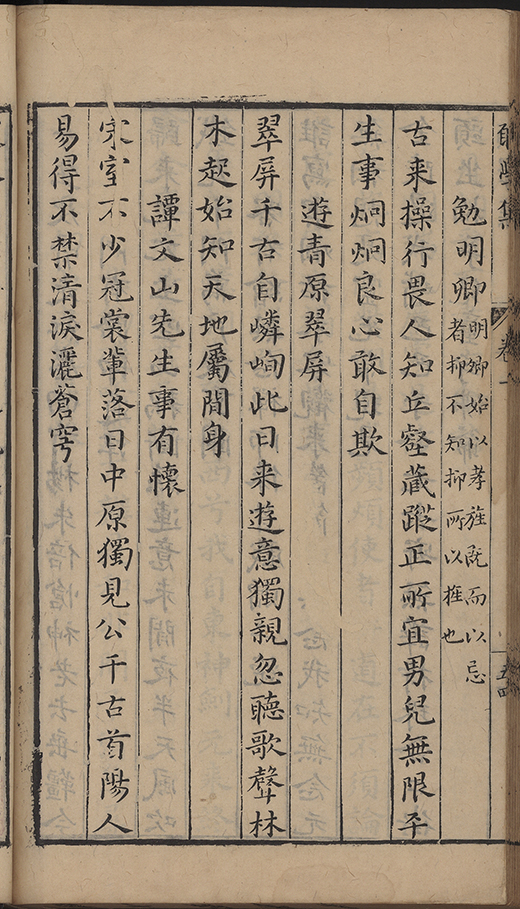 學集
卷
五四
勉明卿
明卿始以孝旌既而以忌
者抑不知抑所以旌也
古来操行畏人知丘壑藏蹤正所宜男兒無限平
生事炯炯良心敢自欺
遊青原翠屏
翠屏千古自嶙峋此日来遊意獨親忽聽歌聲林
木起始知天地屬閒身
譚文山先生事有懷
宋室不少冠裳輩落日中原獨見公千古首陽人
易得不禁清淚灑蒼穹